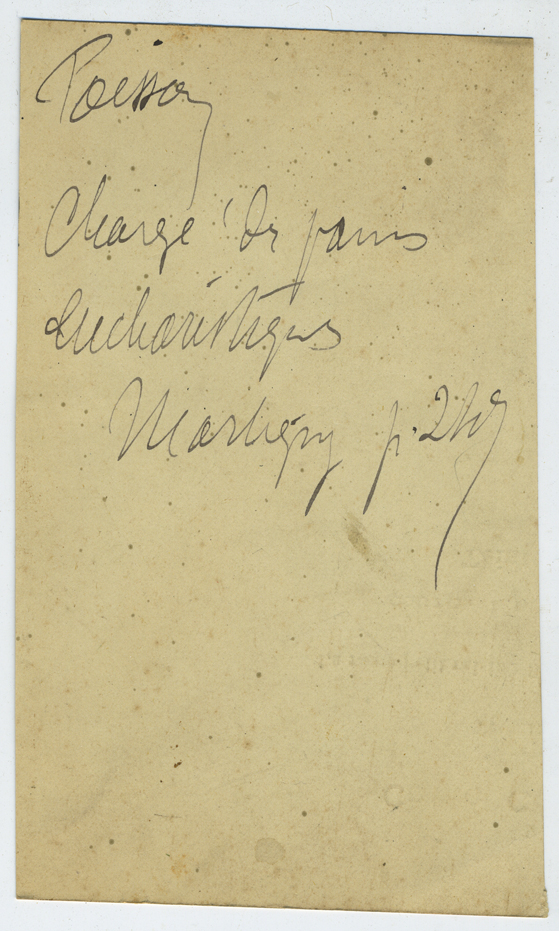 Poisson
Chargé de pains
Eucharistiques
Martigny p.